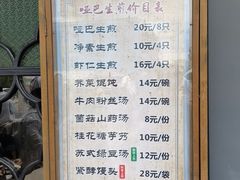 哑巴生煎价目表
哑巴生煎 20元/8只
净素生煎 10元/4只
虾仁生煎 16元/4只
荠菜馄饨 14元/碗
牛肉粉丝汤 14元/碗
菌菇山药汤 8元/份
桂花糖芋艿 10元/份
苏式绿豆汤 12元/份
紧酵馒头 28元/袋